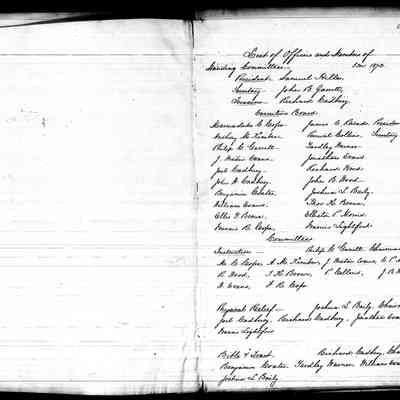 List of Officers and Members of
Standing Committees 1870
President Samuel Hilles
Secretary John B. Garrett
Treasurer Richard Cadbury
Executive Board
Marmaduke C. Cope James E. Rhoads President
Anthony M. Kimber Secretary
Philip C. Garrett Yardley Warner
J. Wistar Evans Jonathan Evans
Joel Cadbury Richard Wood
John H. John B. Wood
Benjamin Coates Joshua L. Baily
William Evans Thos. K. Brown
Ellis P. Morris
Francis R. Cope Francis Lightfoot
Committees
Instruction Philip C. Garrett Chairman
M. C. Cope A. M. Kimber, J. Wistar Evans,
R. Wood, T. K. Brown, P. Collins, J. B.
Evans, F. R. Cope
Physical Relief Joshua L. Baily,
Joel Cadbury, Richard Cadbury, Jonathan
Francis Lightfoot
Bible & Tract Richard Cadbury,
Benjamin Coates, Yardley Warner, William
Joshua L. Baily